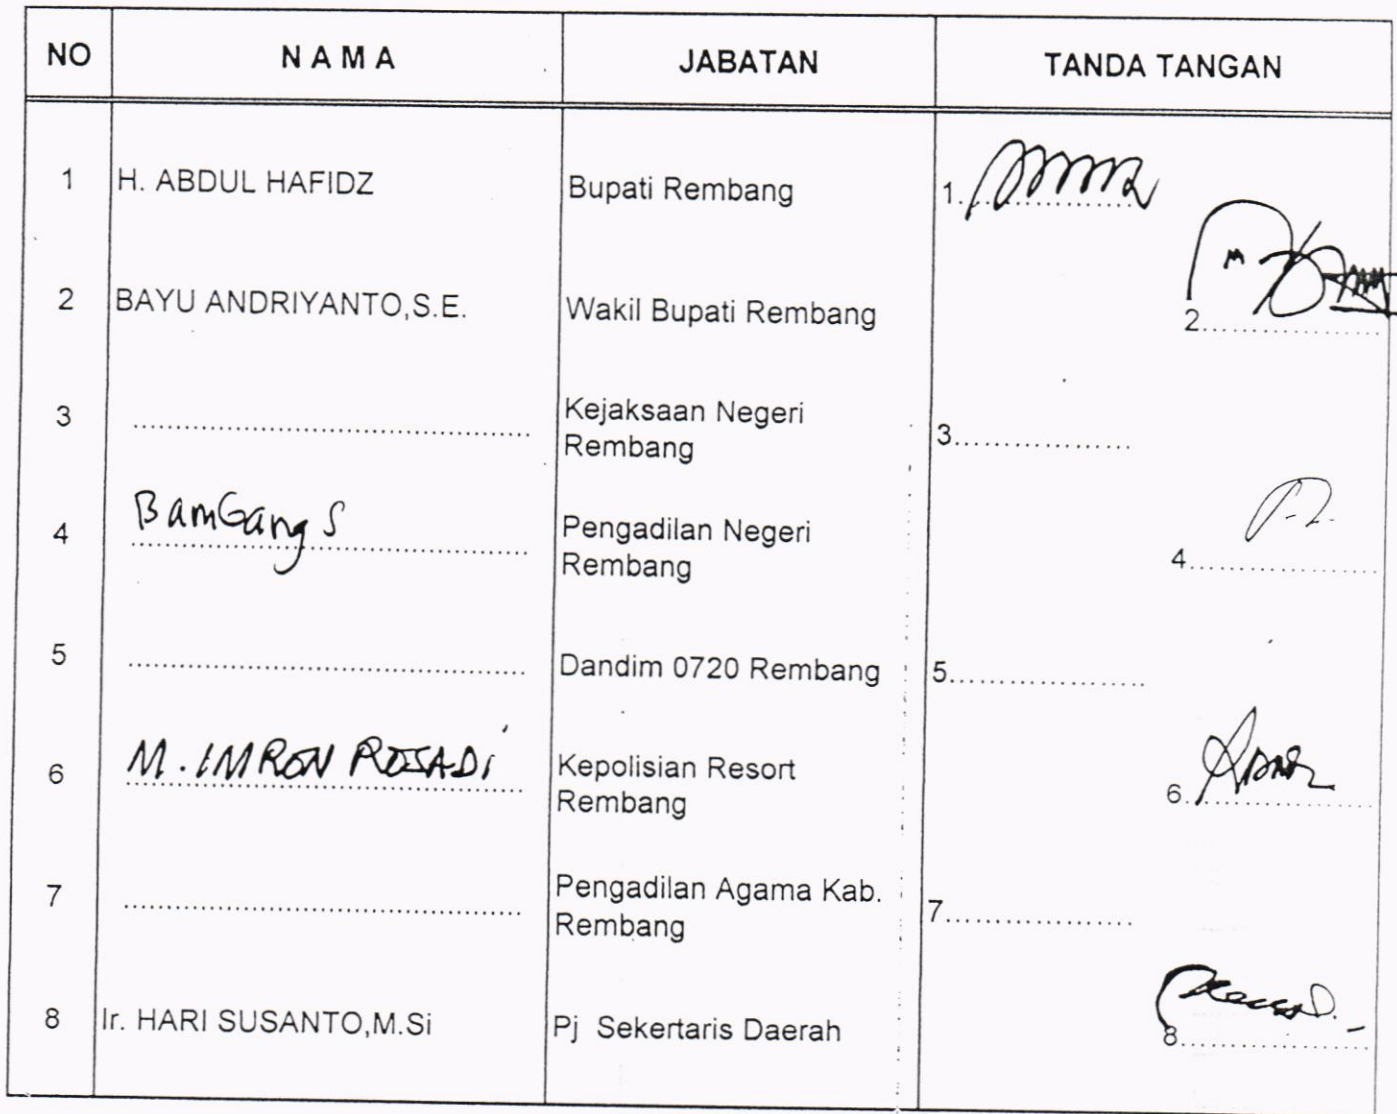 NO NAMA JABATAN TANDA TANGAN
1 H. ABDUL HAFIDZ Bupati Rembang 1..................
2 BAYU ANDRIYANTO,S.E. Wakil Bupati Rembang 2..................
3 .................. Kejaksaan Negeri 3..................
Rembang
4 BamGang S Pengadilan Negeri 4..................
Rembang
5 .................. Dandim 0720 Rembang 5..................
6 M. IMRON ROSADI Kepolisian Resort 6..................
Rembang
7 .................. Pengadilan Agama Kab. 7..................
Rembang
8 Ir. HARI SUSANTO,M.Si Pj Sekertaris Daerah 8..................